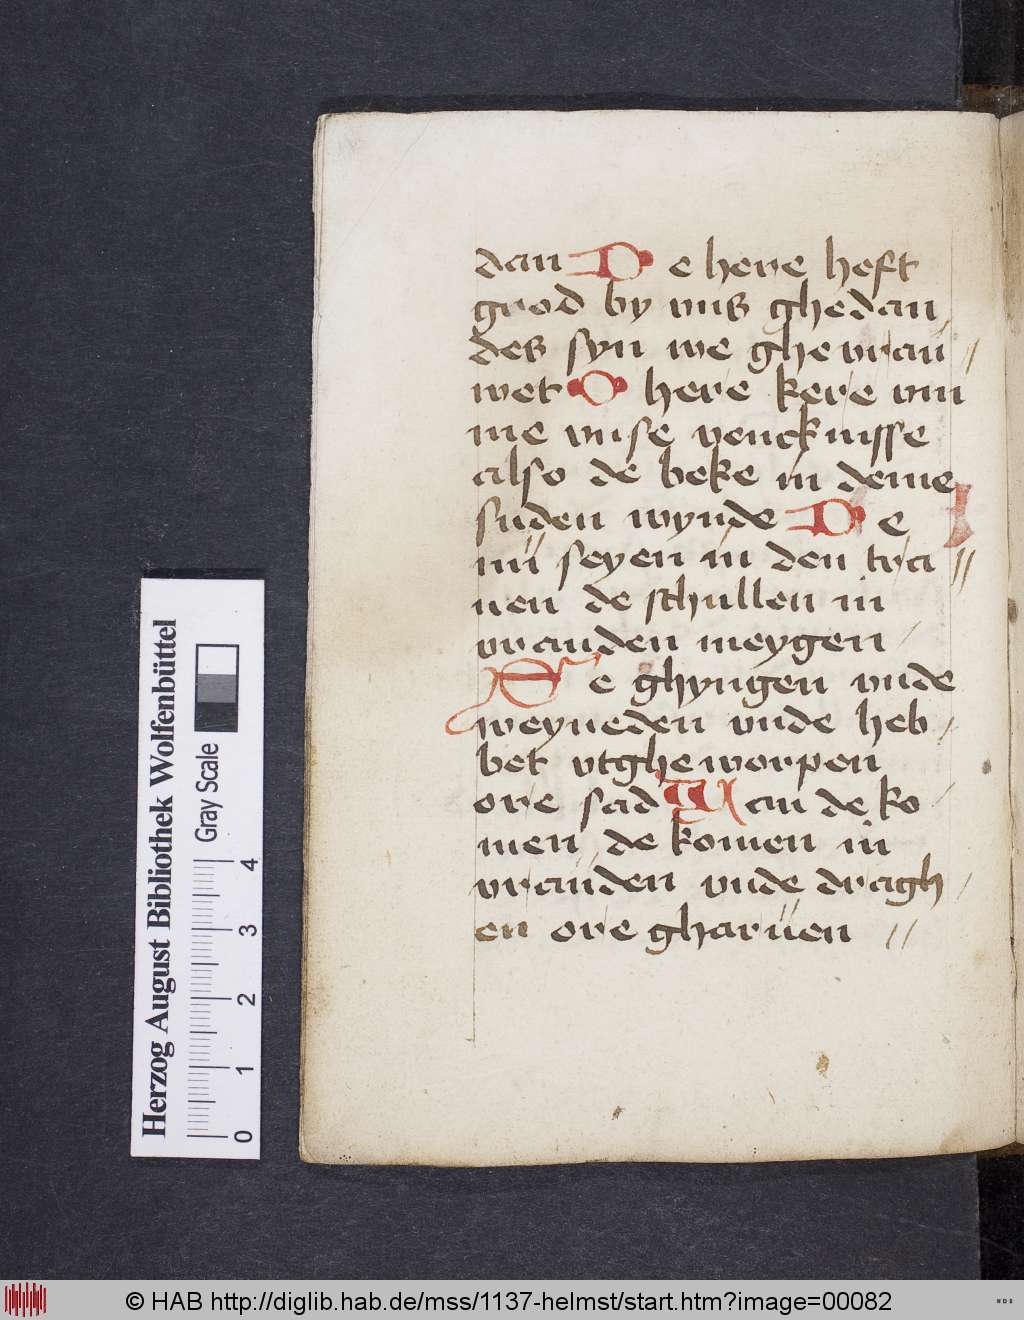 dan De here heft
grod by vns ghedan
des syn we ghevrau
wet O here kere vm
me vnse vencknisse
also de beke in deme
suden wynde De
nu seyen in den tra
nen de schullen in
vrauden meygen
Se ghyngen vnde
weyneden vnde heb
bet vtgheworpen
ore sad Man de ko
men de komen in
vrauden vnde dragh
en ore gharuen
Herzog August Bibliothek Wolfenbüttel
Gray Scale
0 1 2 3 4
© HAB http://diglib.hab.de/mss/1137-helmst/start.htm?image=00082